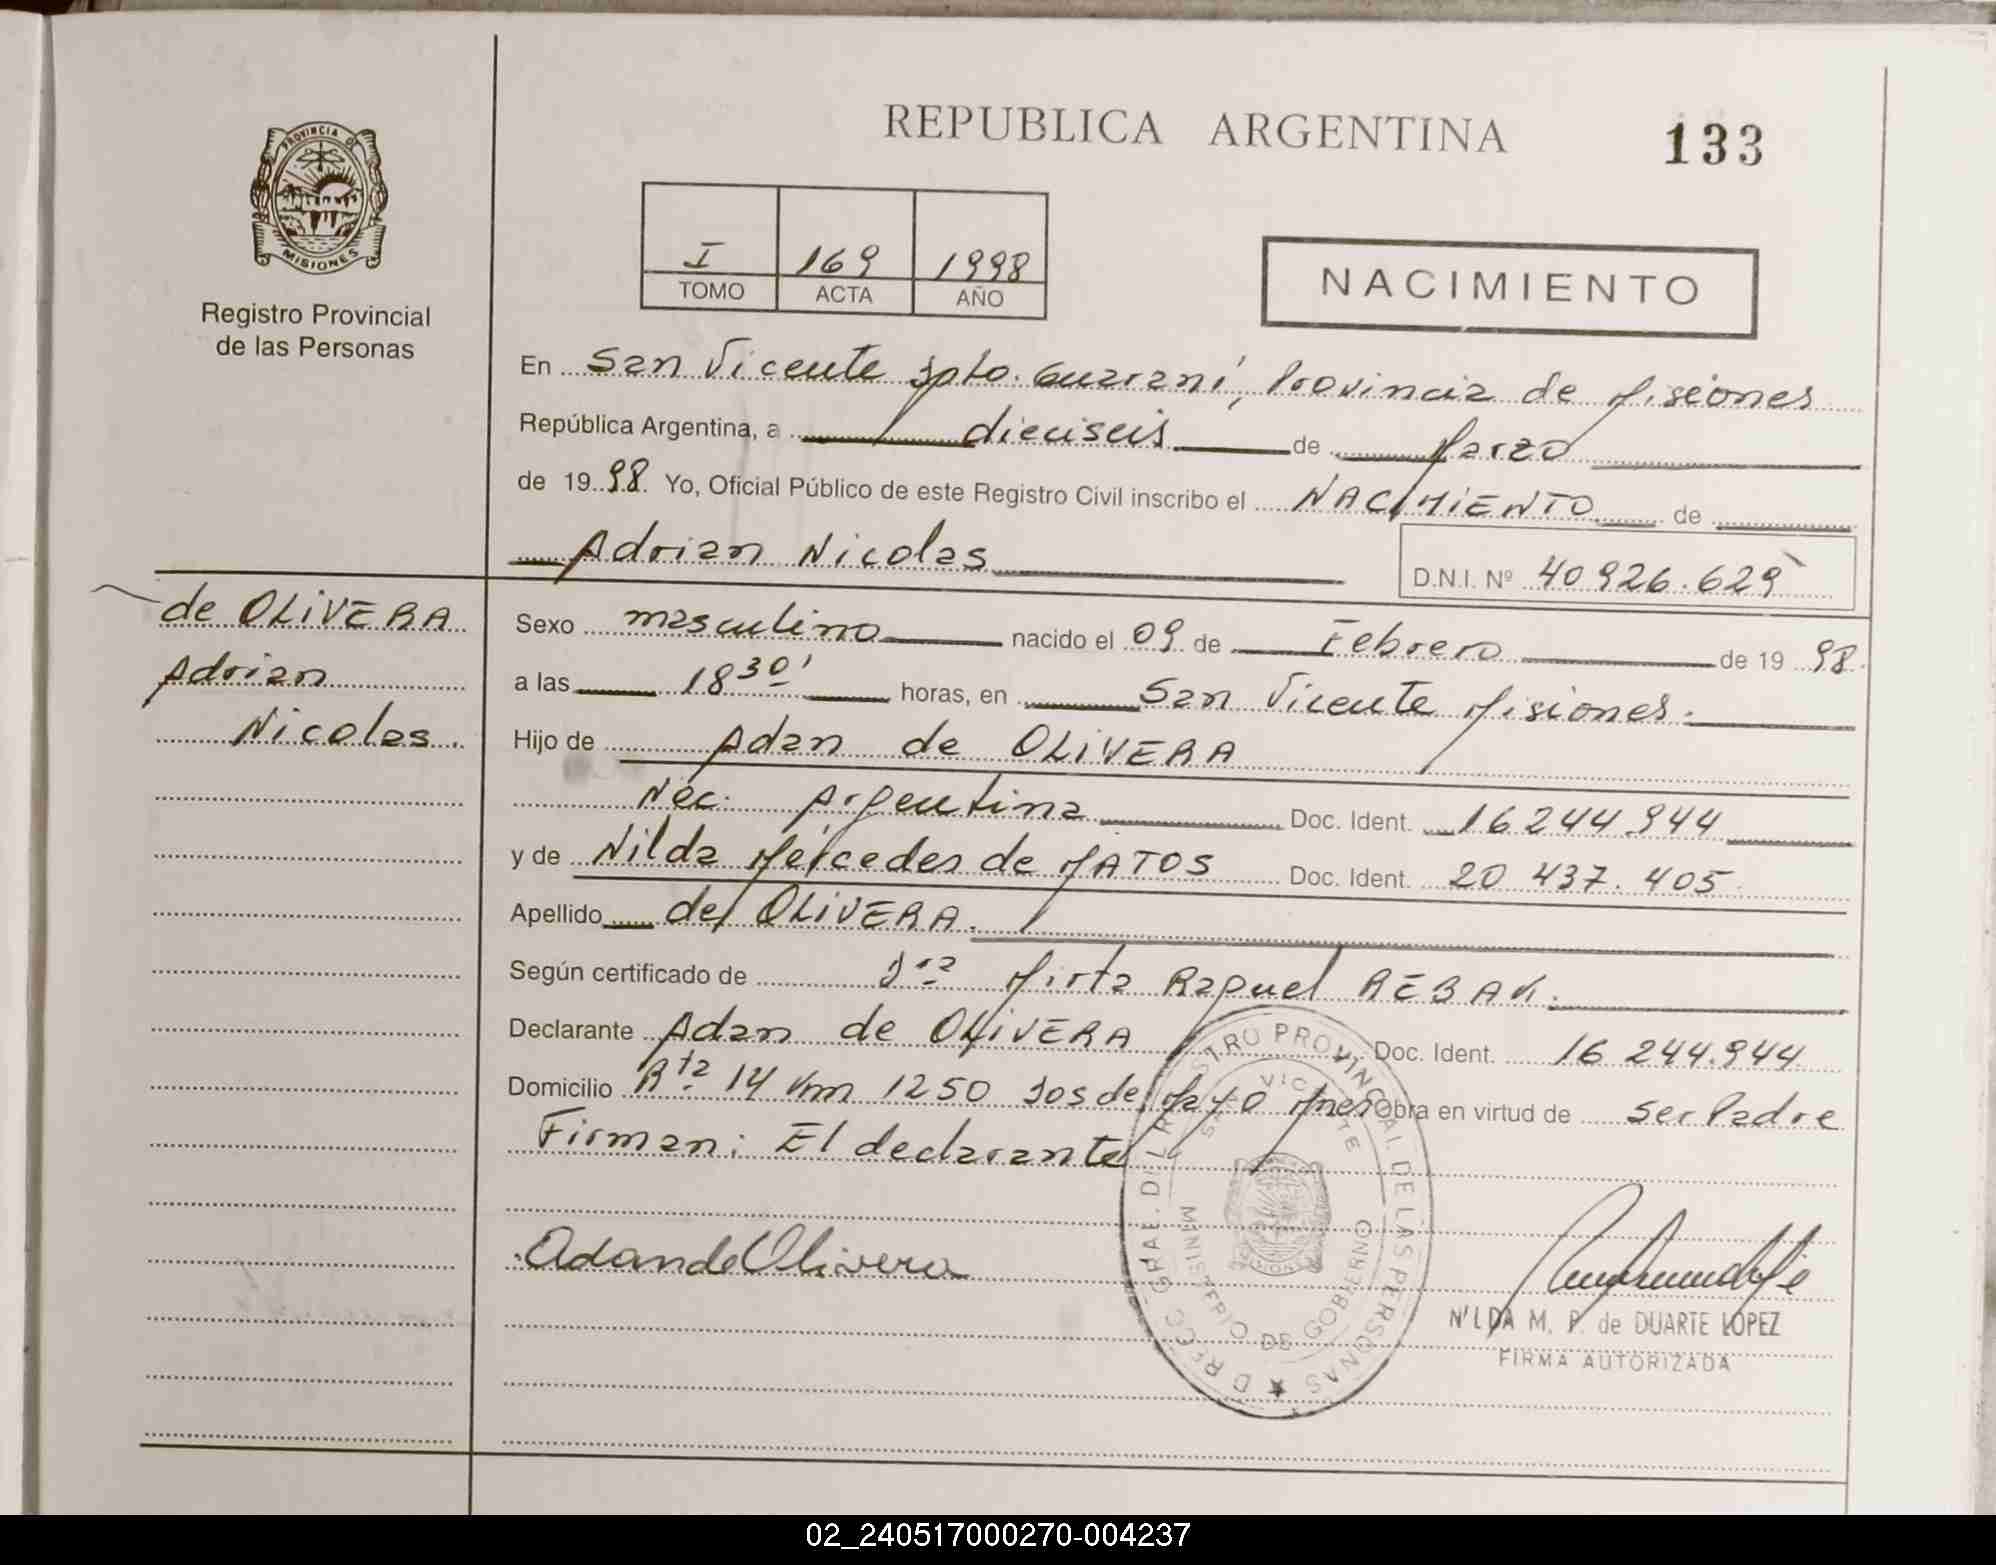 REPUBLICA ARGENTINA
133
PROVINCIA DE MISIONES
Registro Provincial
de las Personas
I 169 1998
TOMO ACTA AÑO
NACIMIENTO
En San Vicente Dpto. Guaraní, Provincia de Misiones
República Argentina, a dieciseis de Marzo
de 1998. Yo, Oficial Público de este Registro Civil inscribo el NACIMIENTO de
Adrian Nicolas
D.N.I. Nº 40926.629
de OLIVERA
Adrian
Nicolas.
Sexo masculino nacido el 09 de Febrero de 1998.
a las 18 30' horas, en San Vicente Misiones.
Hijo de Adan de OLIVERA
Nac. Argentina Doc. Ident. 16244.944
y de Nilda Mercedes de MATOS Doc. Ident. 20 437.405
Apellido de OLIVERA.
Según certificado de Dra Mirta Raquel REBAK.
Declarante Adan de OLIVERA Doc. Ident. 16 244.944
Domicilio Rta 14 Km 1250 Dos de Mayo Mnes Obra en virtud de ser Padre
Firman: El declarante
Adan de Olivera
DIRECC. GRAL. DEL REGISTRO PROVINCIAL DE LAS PERSONAS
SAN VICENTE
MINISTERIO DE GOBIERNO
NILDA M. P. de DUARTE LOPEZ
FIRMA AUTORIZADA
02_240517000270-004237